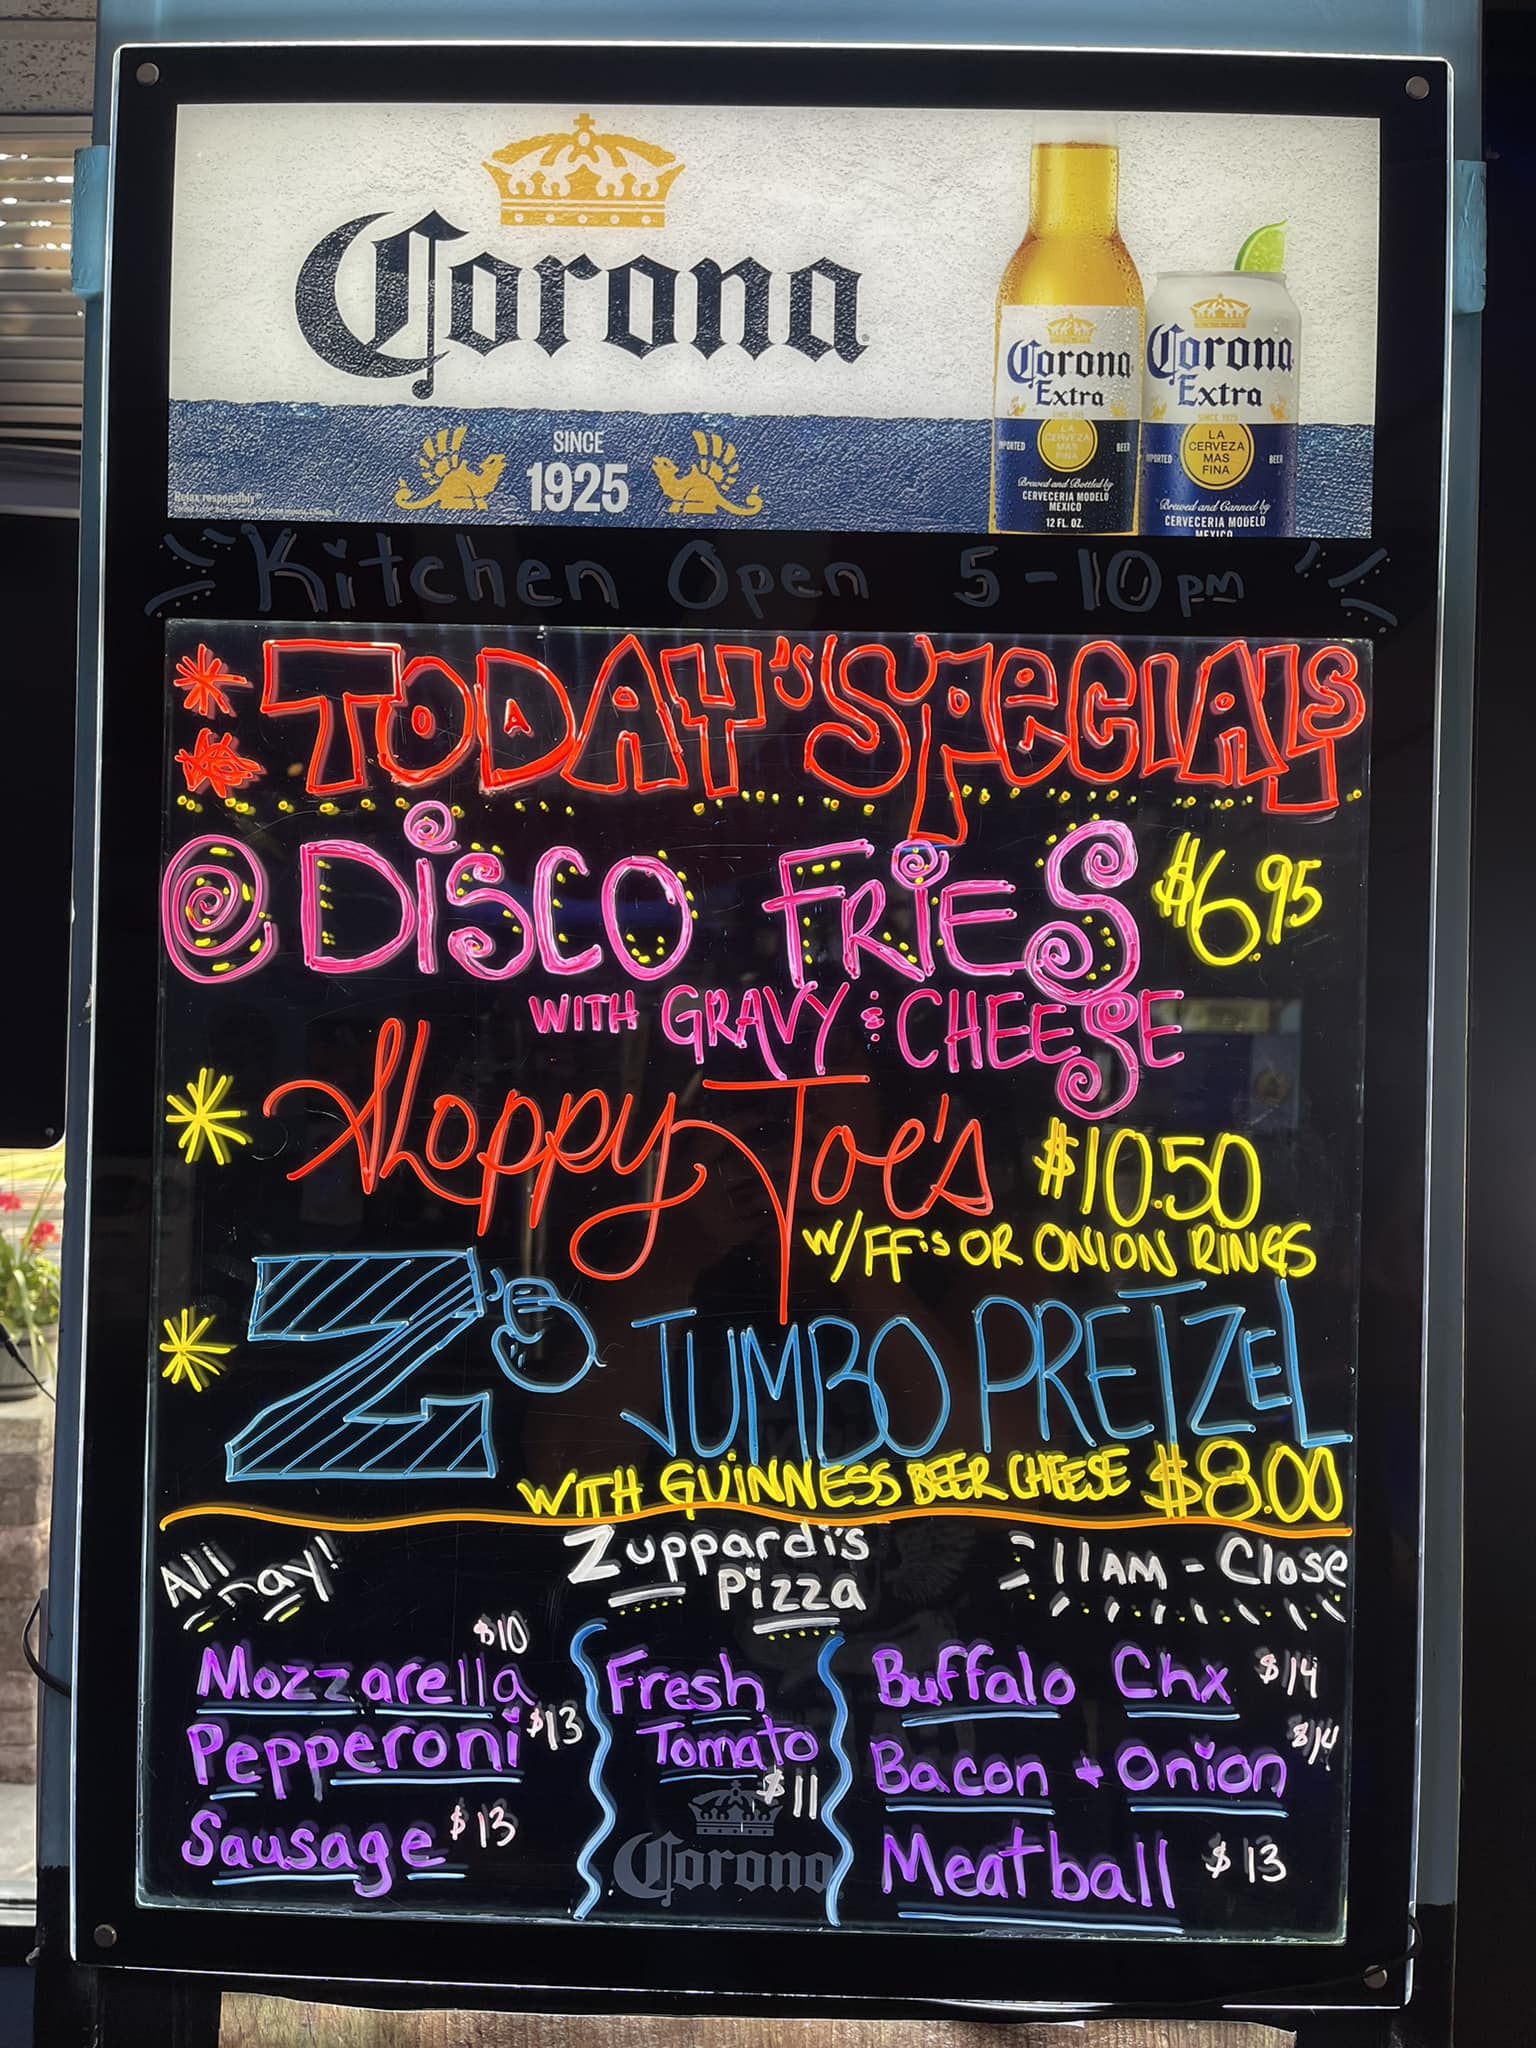 Corona
SINCE
1925
Relax responsibly®
Corona
Extra
SINCE 1925
LA
CERVEZA
MAS
FINA
IMPORTED
BEER
Brewed and Bottled by
CERVECERIA MODELO
MEXICO
12 FL. OZ.
Corona
Extra
SINCE 1925
LA
CERVEZA
MAS
FINA
IMPORTED
BEER
Brewed and Canned by
CERVECERIA MODELO
MEXICO
Kitchen Open 5-10pm
TODAY'S SPECIALS
DISCO FRIES $6.95
WITH GRAVY & CHEESE
Sloppy Joe's $10.50
W/FF's OR ONION RINGS
Z's JUMBO PRETZEL
WITH GUINNESS BEER CHEESE $8.00
All Day!
Zuppardi's
Pizza
11AM - Close
Mozzarella $10
Pepperoni $13
Sausage $13
Fresh
Tomato
$11
Corona
Buffalo Chx $14
Bacon + Onion $14
Meatball $13